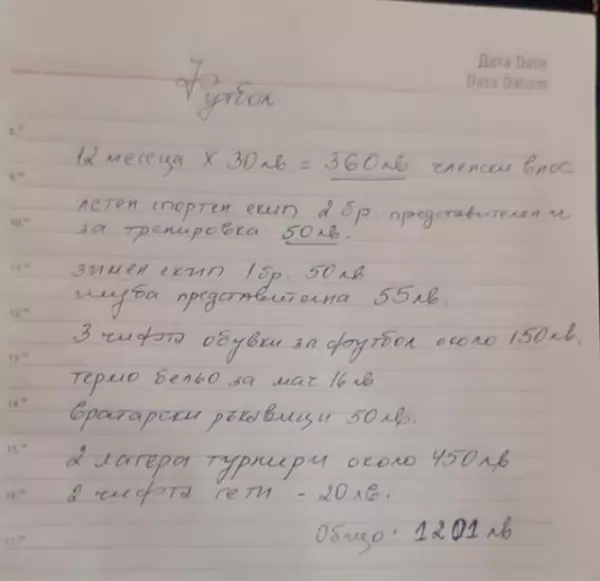 Дата Date
Data Datum
Футбол
8⁰⁰
12 месеца x 30лв = 360лв членски внос
9⁰⁰
летен спортен екип 2бр. представителен и
10⁰⁰
за тренировка 50лв.
11⁰⁰
зимен екип 1бр. 50лв
шуба представителна 55лв.
12⁰⁰
3 чифта обувки за футбол около 150лв.
13⁰⁰
термо бельо за мач 16лв
14⁰⁰
вратарски ръкавици 50лв.
15⁰⁰
2 лагера турнири около 450лв
16⁰⁰
2 чифта гети - 20лв.
17⁰⁰
Общо: 1201лв